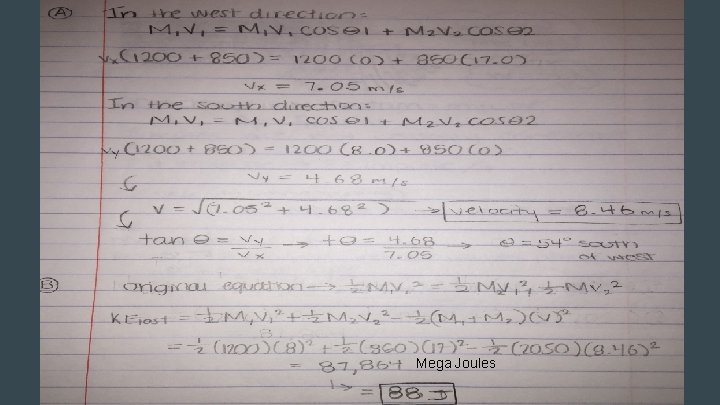 A In the west direction:
M₁V₁ = M₁V₁ cosθ1 + M₂V₂ cosθ2
Vx(1200 + 850) = 1200(0) + 850(17.0)
Vx = 7.05 m/s
In the south direction:
M₁V₁ = M₁V₁ cosθ1 + M₂V₂ cosθ2
Vy(1200 + 850) = 1200(8.0) + 850(0)
Vy = 4.68 m/s
V = √(7.05² + 4.68²) → velocity = 8.46 m/s
tan θ = Vy/Vx → tθ = 4.68/7.05 → θ = 54° south
of west
B original equation → ½M₁V₁² = ½MV₁² + ½MV₂²
KElost = ½M₁V₁² + ½M₂V₂² - ½(M₁+M₂)(V)²
= ½(1200)(8)² + ½(850)(17)² - ½(2050)(8.46)²
= 87,864 Mega Joules
↳ = 88 J